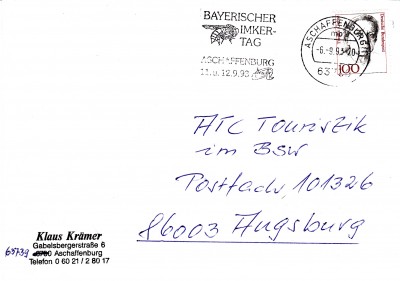 BAYERISCHER
IMKER-
TAG
ASCHAFFENBURG
11. u. 12.9.93
ASCHAFFENBURG 1
-6.-9.93-20
63
Deutsche Bundespost
100
ATC Touristik
im BSW
Postfach 101326
86003 Augsburg
Klaus Krämer
Gabelsbergerstraße 6
63739 8750 Aschaffenburg
Telefon 0 60 21 / 2 80 17